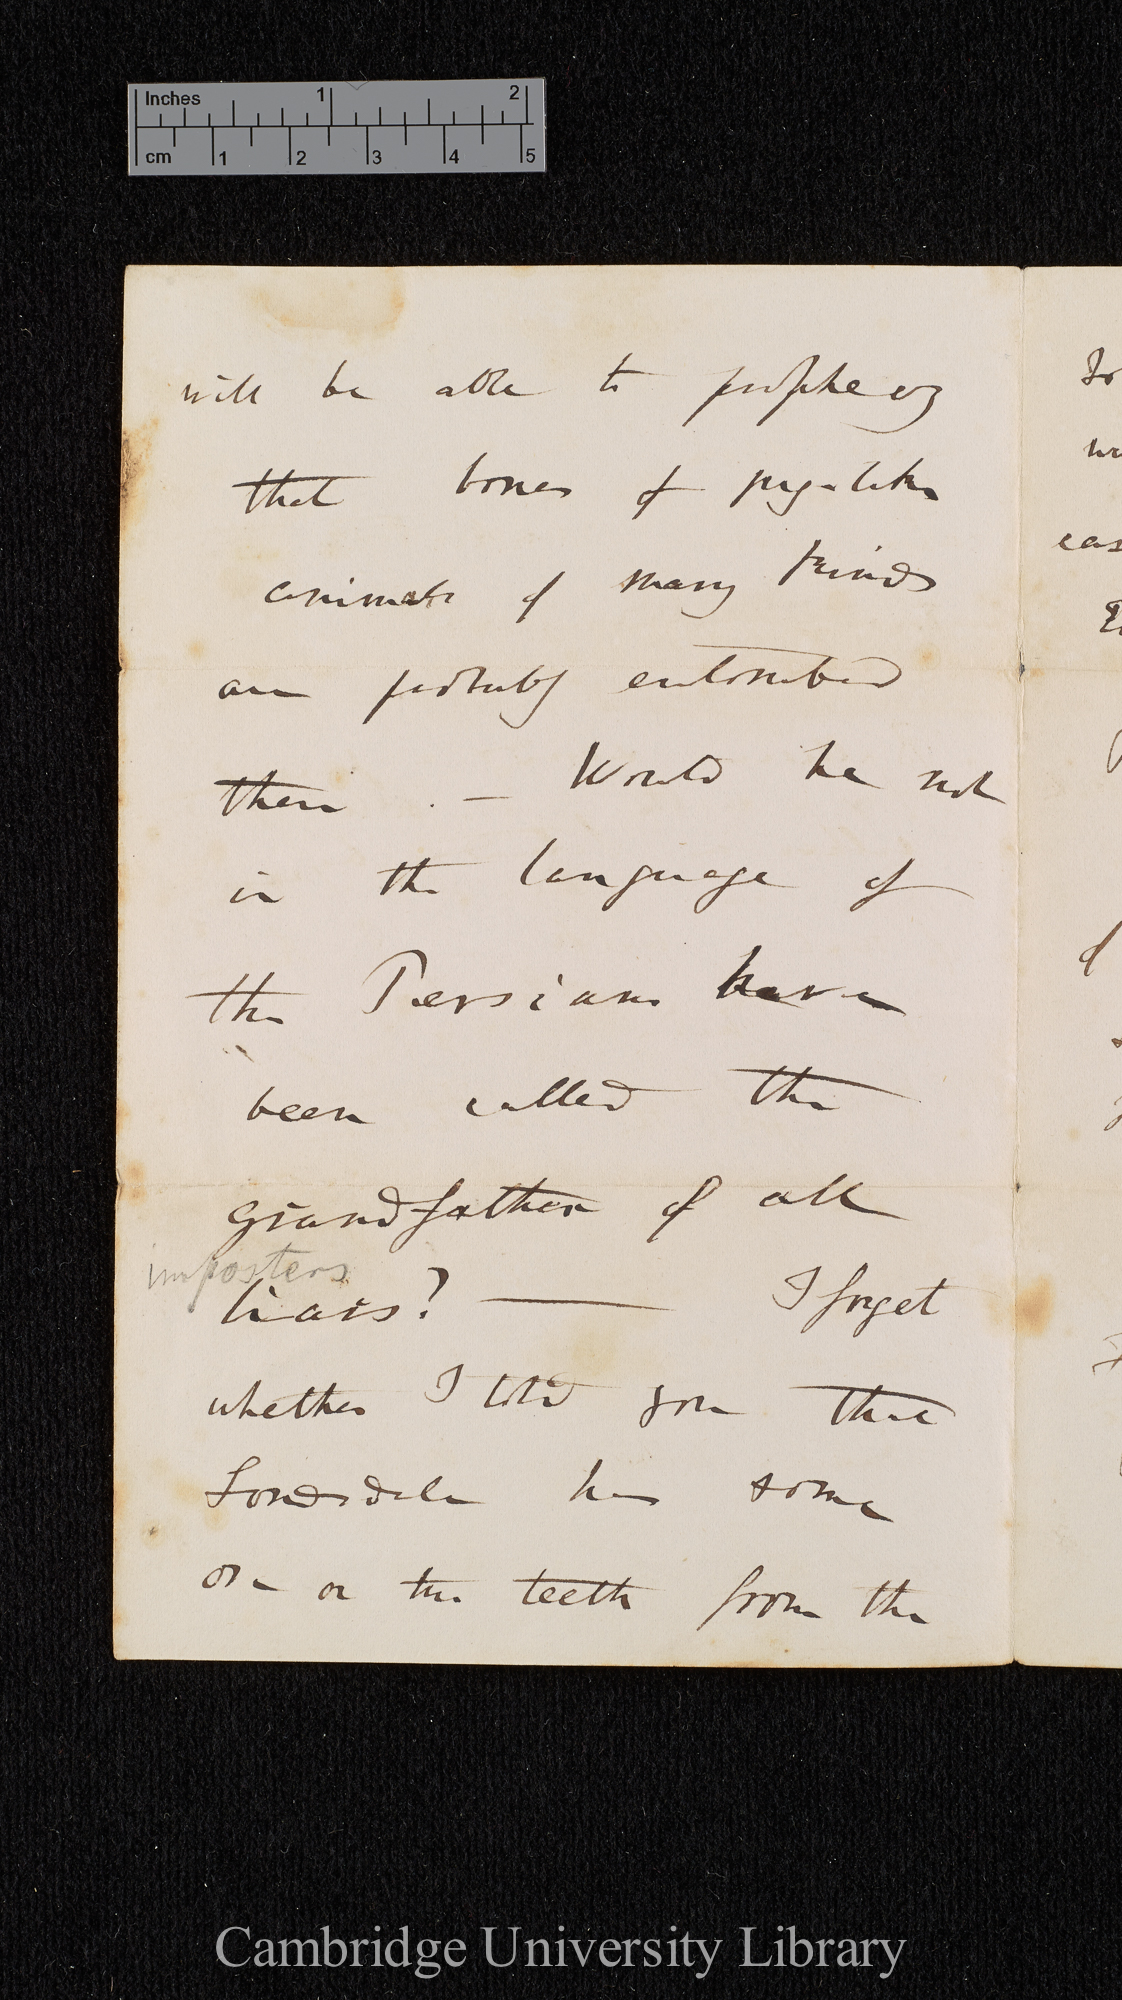 Inches 1 2
cm 1 2 3 4 5
will be able to prophecy
that bones of pig-like
animals of many kinds
are probably entombed
there . — Would he not
in the language of
the Persians have
been called the
grandfather of all
imposters
liars? — I forget
whether I told you that
Lonsdale has some
one or two teeth from the
Cambridge University Library